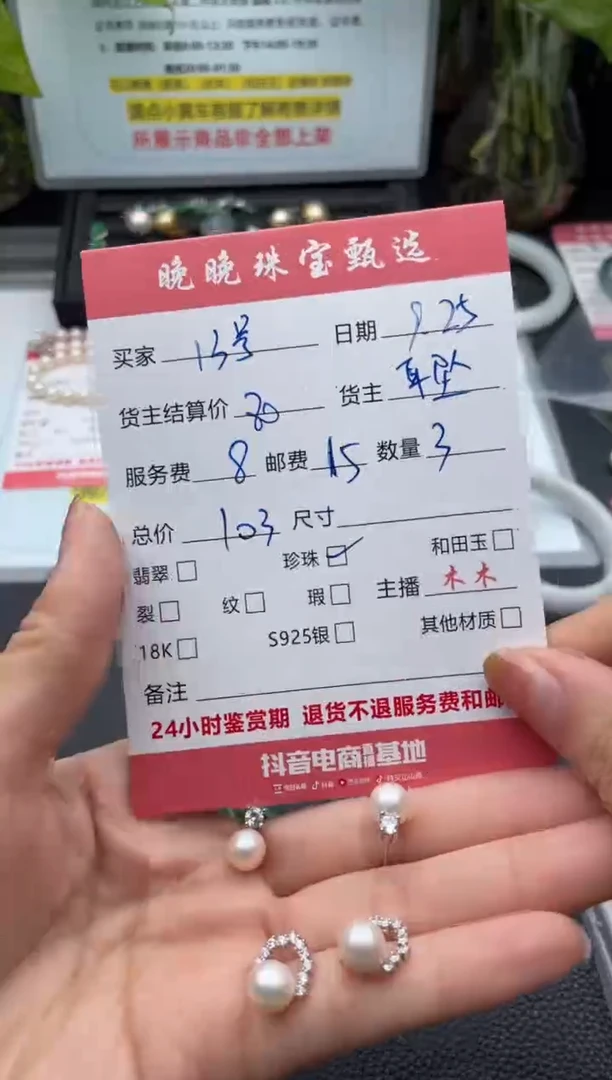 请点小黄车客服了解商素详情
所展示商品非全部上架
晚晚珠宝甄选
买家 13号 日期 9.25
货主结算价 80 货主 耳坠
服务费 8 邮费 15 数量 3
总价 103 尺寸
翡翠 珍珠 ✓ 和田玉
裂 纹 瑕 主播 木木
18K S925银 其他材质
备注
24小时鉴赏期 退货不退服务费和邮
抖音电商直播基地